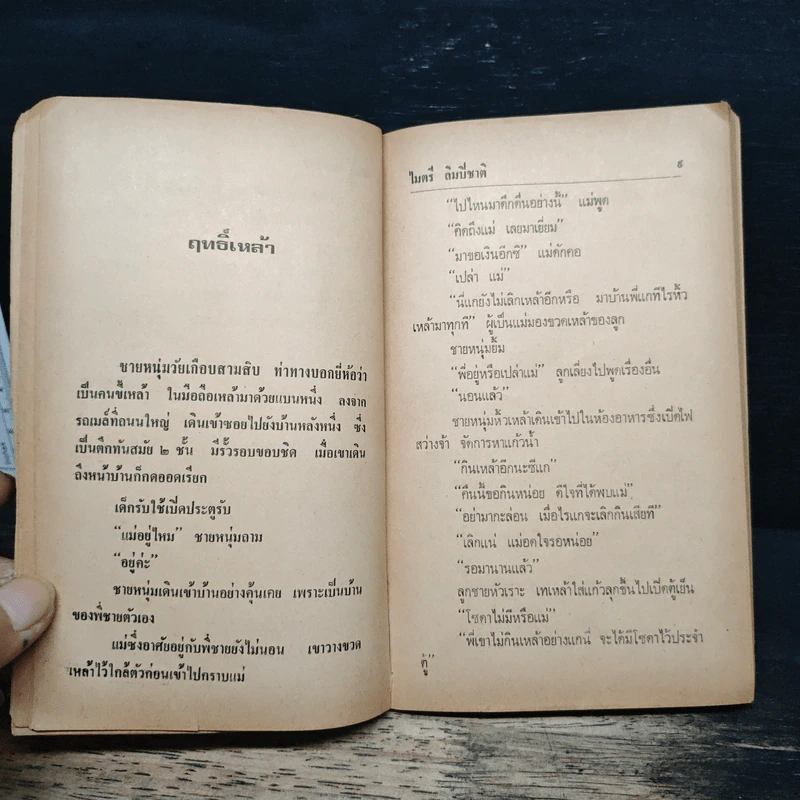 ฤทธิ์เหล้า
ชายหนุ่มวัยเกือบสามสิบ ท่าทางบอกยี่ห้อว่า
เป็นคนขี้เหล้า ในมือถือเหล้ามาด้วยแบนหนึ่ง ลงจาก
รถเมล์ที่ถนนใหญ่ เดินเข้าซอยไปยังบ้านหลังหนึ่ง ซึ่ง
เป็นตึกทันสมัย ๒ ชั้น มีรั้วรอบขอบชิด เมื่อเขาเดิน
ถึงหน้าบ้านก็กดออดเรียก
เด็กรับใช้เปิดประตูรับ
“แม่อยู่ไหม” ชายหนุ่มถาม
“อยู่ค่ะ”
ชายหนุ่มเดินเข้าบ้านอย่างคุ้นเคย เพราะเป็นบ้าน
ของพี่ชายตัวเอง
แม่ซึ่งอาศัยอยู่กับพี่ชายยังไม่นอน เขาวางขวด
เหล้าไว้ใกล้ตัวก่อนเข้าไปกราบแม่
ไมตรี ลิมปิชาติ ๙
“ไปไหนมาดึกดื่นอย่างนี้” แม่พูด
“คิดถึงแม่ เลยมาเยี่ยม”
“มาขอเงินอีกซิ” แม่ดักคอ
“เปล่า แม่”
“นี่แกยังไม่เลิกเหล้าอีกหรือ มาบ้านพี่แกทีไรหิ้ว
เหล้ามาทุกที” ผู้เป็นแม่มองขวดเหล้าของลูก
ชายหนุ่มยิ้ม
“พี่อยู่หรือเปล่าแม่” ลูกเลี่ยงไปพูดเรื่องอื่น
“นอนแล้ว”
ชายหนุ่มหิ้วเหล้าเดินเข้าไปในห้องอาหารซึ่งเปิดไฟ
สว่างจ้า จัดการหาแก้วน้ำ
“กินเหล้าอีกนะซีแก”
“คืนนี้ขอกินหน่อย ดีใจที่ได้พบแม่”
“อย่ามากะล่อน เมื่อไรแกจะเลิกกินเสียที”
“เลิกแน่ แม่อดใจรอหน่อย”
“รอมานานแล้ว”
ลูกชายหัวเราะ เทเหล้าใส่แก้วลุกขึ้นไปเปิดตู้เย็น
“โซดาไม่มีหรือแม่”
“พี่เขาไม่กินเหล้าอย่างแกนี่ จะได้มีโซดาไว้ประจำ
ตู้”